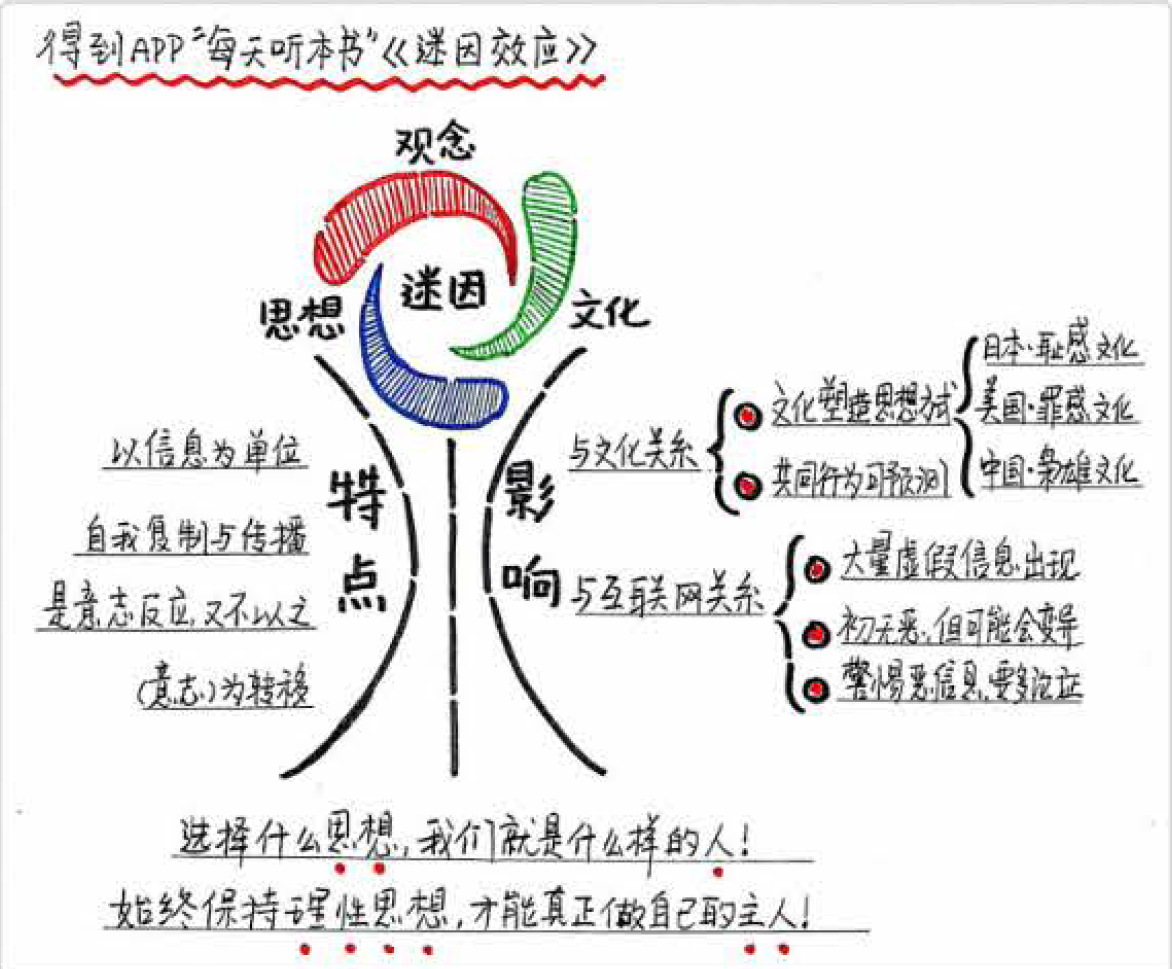 得到APP“每天听本书”《迷因效应》
观念
迷因
思想
文化
特点
以信息为单位
自我复制与传播
是意志反应,又不以之
(意志)为转移
影响
与文化关系
文化塑造思想方式
日本·耻感文化
美国·罪感文化
中国·枭雄文化
共同行为可预测
与互联网关系
大量虚假信息出现
初无恶,但可能会变异
警惕恶信息,要多论证
选择什么思想,我们就是什么样的人!
始终保持理性思想,才能真正做自己的主人!